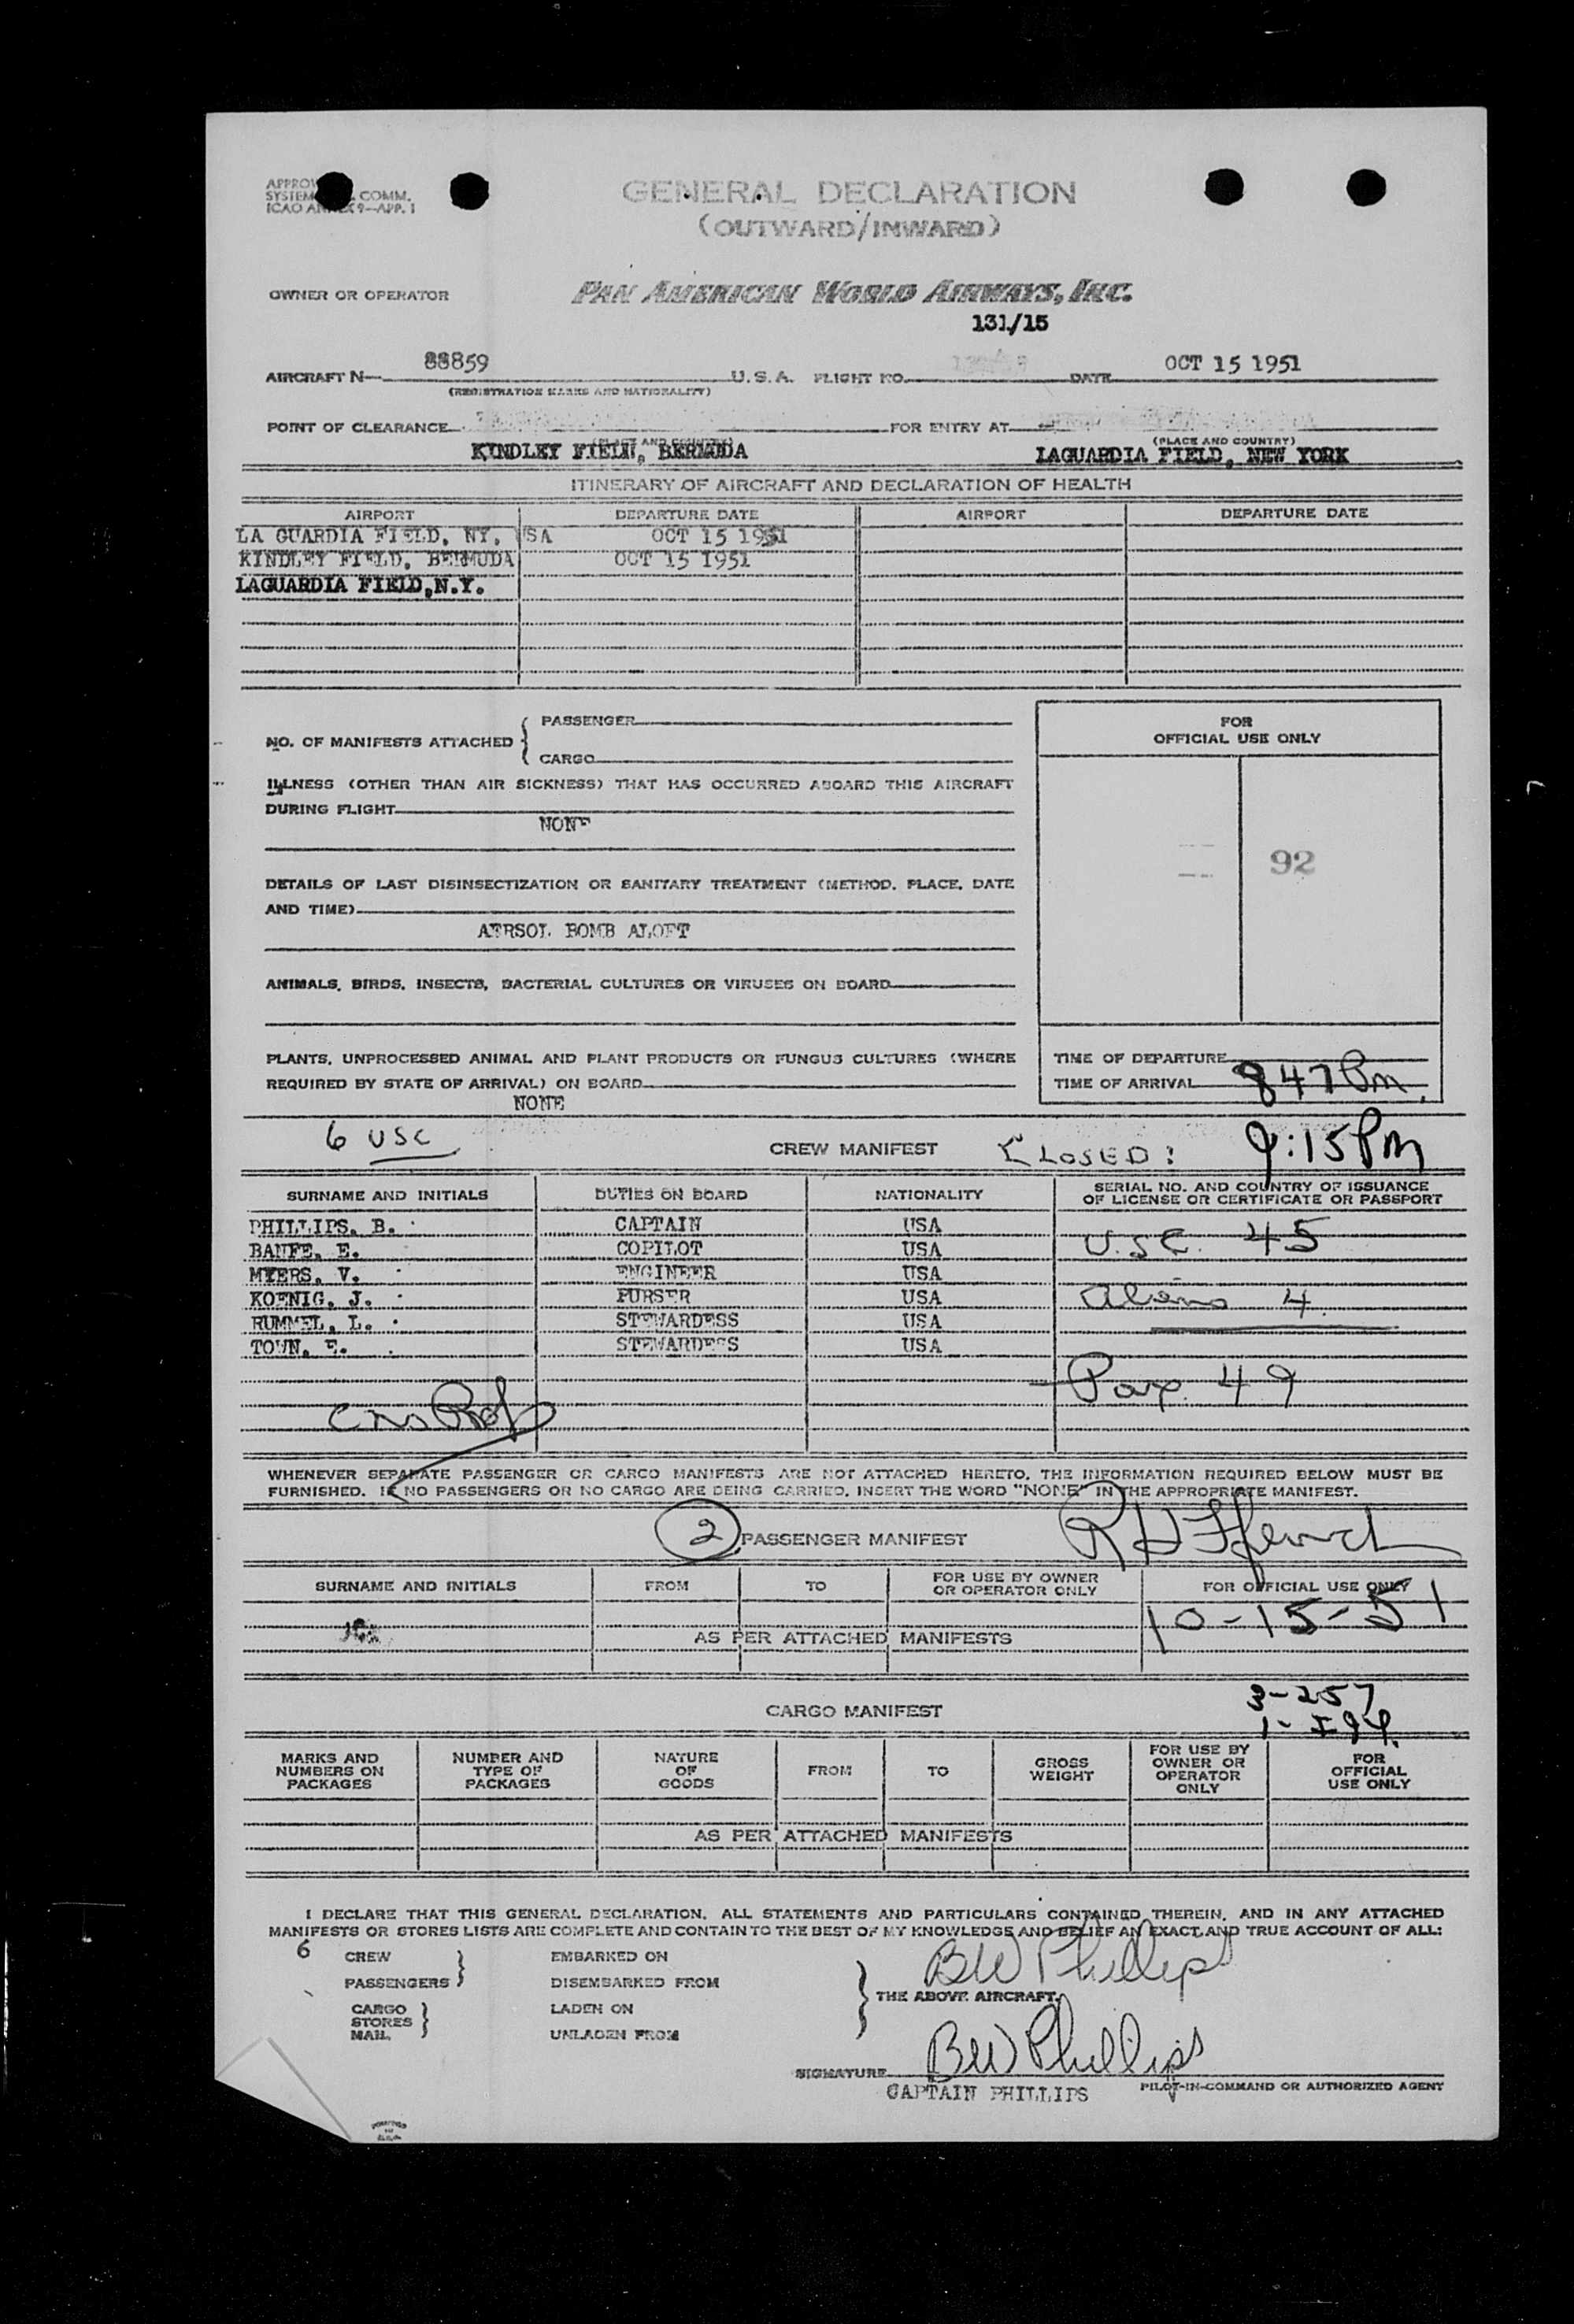 GENERAL DECLARATION
(OUTWARD/INWARD)
COMM.
OWNER OR OPERATOR PAN AMERICAN WORLD AIRWAYS, INC.
131/15
AIRCRAFT N— 88859 U.S.A. FLIGHT NO. DATE OCT 15 1951
(REGISTRATION MARKS AND NATIONALITY)
POINT OF CLEARANCE FOR ENTRY AT
(PLACE AND COUNTRY) (PLACE AND COUNTRY)
KINDLEY FIELD, BERMUDA LAGUARDIA FIELD, NEW YORK
ITINERARY OF AIRCRAFT AND DECLARATION OF HEALTH
AIRPORT DEPARTURE DATE AIRPORT DEPARTURE DATE
LA GUARDIA FIELD, NY, USA OCT 15 1951
KINDLEY FIELD, BERMUDA OCT 15 1951
LAGUARDIA FIELD,N.Y.
NO. OF MANIFESTS ATTACHED { PASSENGER
CARGO
FOR
OFFICIAL USE ONLY
ILLNESS (OTHER THAN AIR SICKNESS) THAT HAS OCCURRED ABOARD THIS AIRCRAFT
DURING FLIGHT
NONE
92
DETAILS OF LAST DISINSECTIZATION OR SANITARY TREATMENT (METHOD, PLACE, DATE
AND TIME)
AERSOL BOMB ALOFT
ANIMALS, BIRDS, INSECTS, BACTERIAL CULTURES OR VIRUSES ON BOARD
PLANTS, UNPROCESSED ANIMAL AND PLANT PRODUCTS OR FUNGUS CULTURES (WHERE
REQUIRED BY STATE OF ARRIVAL) ON BOARD
NONE
TIME OF DEPARTURE
TIME OF ARRIVAL 847 Pm.
6 USC CREW MANIFEST CLOSED: 9:15 Pm
SURNAME AND INITIALS DUTIES ON BOARD NATIONALITY SERIAL NO. AND COUNTRY OF ISSUANCE
OF LICENSE OR CERTIFICATE OR PASSPORT
PHILLIPS, B. CAPTAIN USA
BANFE, E. COPILOT USA U.S.C. 45
MYERS, V. ENGINEER USA
KOENIG, J. PURSER USA Aliens 4
RUMMEL, L. STEWARDESS USA
TOWN, E. STEWARDESS USA
Pax. 49
WHENEVER SEPARATE PASSENGER OR CARGO MANIFESTS ARE NOT ATTACHED HERETO, THE INFORMATION REQUIRED BELOW MUST BE
FURNISHED. IF NO PASSENGERS OR NO CARGO ARE BEING CARRIED, INSERT THE WORD "NONE" IN THE APPROPRIATE MANIFEST.
2 PASSENGER MANIFEST
SURNAME AND INITIALS FROM TO FOR USE BY OWNER
OR OPERATOR ONLY FOR OFFICIAL USE ONLY
10-15-51
AS PER ATTACHED MANIFESTS
3-257
CARGO MANIFEST
MARKS AND
NUMBERS ON
PACKAGES NUMBER AND
TYPE OF
PACKAGES NATURE
OF
GOODS FROM TO GROSS
WEIGHT FOR USE BY
OWNER OR
OPERATOR
ONLY FOR
OFFICIAL
USE ONLY
AS PER ATTACHED MANIFESTS
I DECLARE THAT THIS GENERAL DECLARATION, ALL STATEMENTS AND PARTICULARS CONTAINED THEREIN, AND IN ANY ATTACHED
MANIFESTS OR STORES LISTS ARE COMPLETE AND CONTAIN TO THE BEST OF MY KNOWLEDGE AND BELIEF AN EXACT AND TRUE ACCOUNT OF ALL:
6 CREW EMBARKED ON BW Phillips
PASSENGERS DISEMBARKED FROM
THE ABOVE AIRCRAFT
CARGO LADEN ON
STORES
MAIL UNLADEN FROM
SIGNATURE BW Phillips
CAPTAIN PHILLIPS PILOT-IN-COMMAND OR AUTHORIZED AGENT